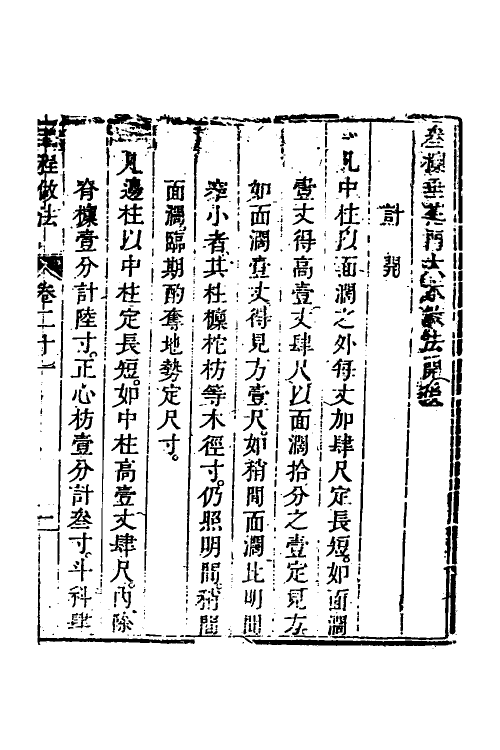 叁檩垂花門大木做法開後
計開
一凡中柱以面濶之外每丈加肆尺定長短。如面濶
壹丈得高壹丈肆尺。以面濶拾分之壹定見方。
如面濶壹丈。得見方壹尺。如稍間面濶比明間
窄小者。其柱檩柁枋等木徑寸。仍照明間。稍間
面濶。臨期酌奪地勢定尺寸。
凡邊柱以中柱定長短。如中柱高壹丈肆尺。內除
脊檩壹分計陸寸。正心枋壹分計叁寸。斗科肆
工程做法 卷二十一 一